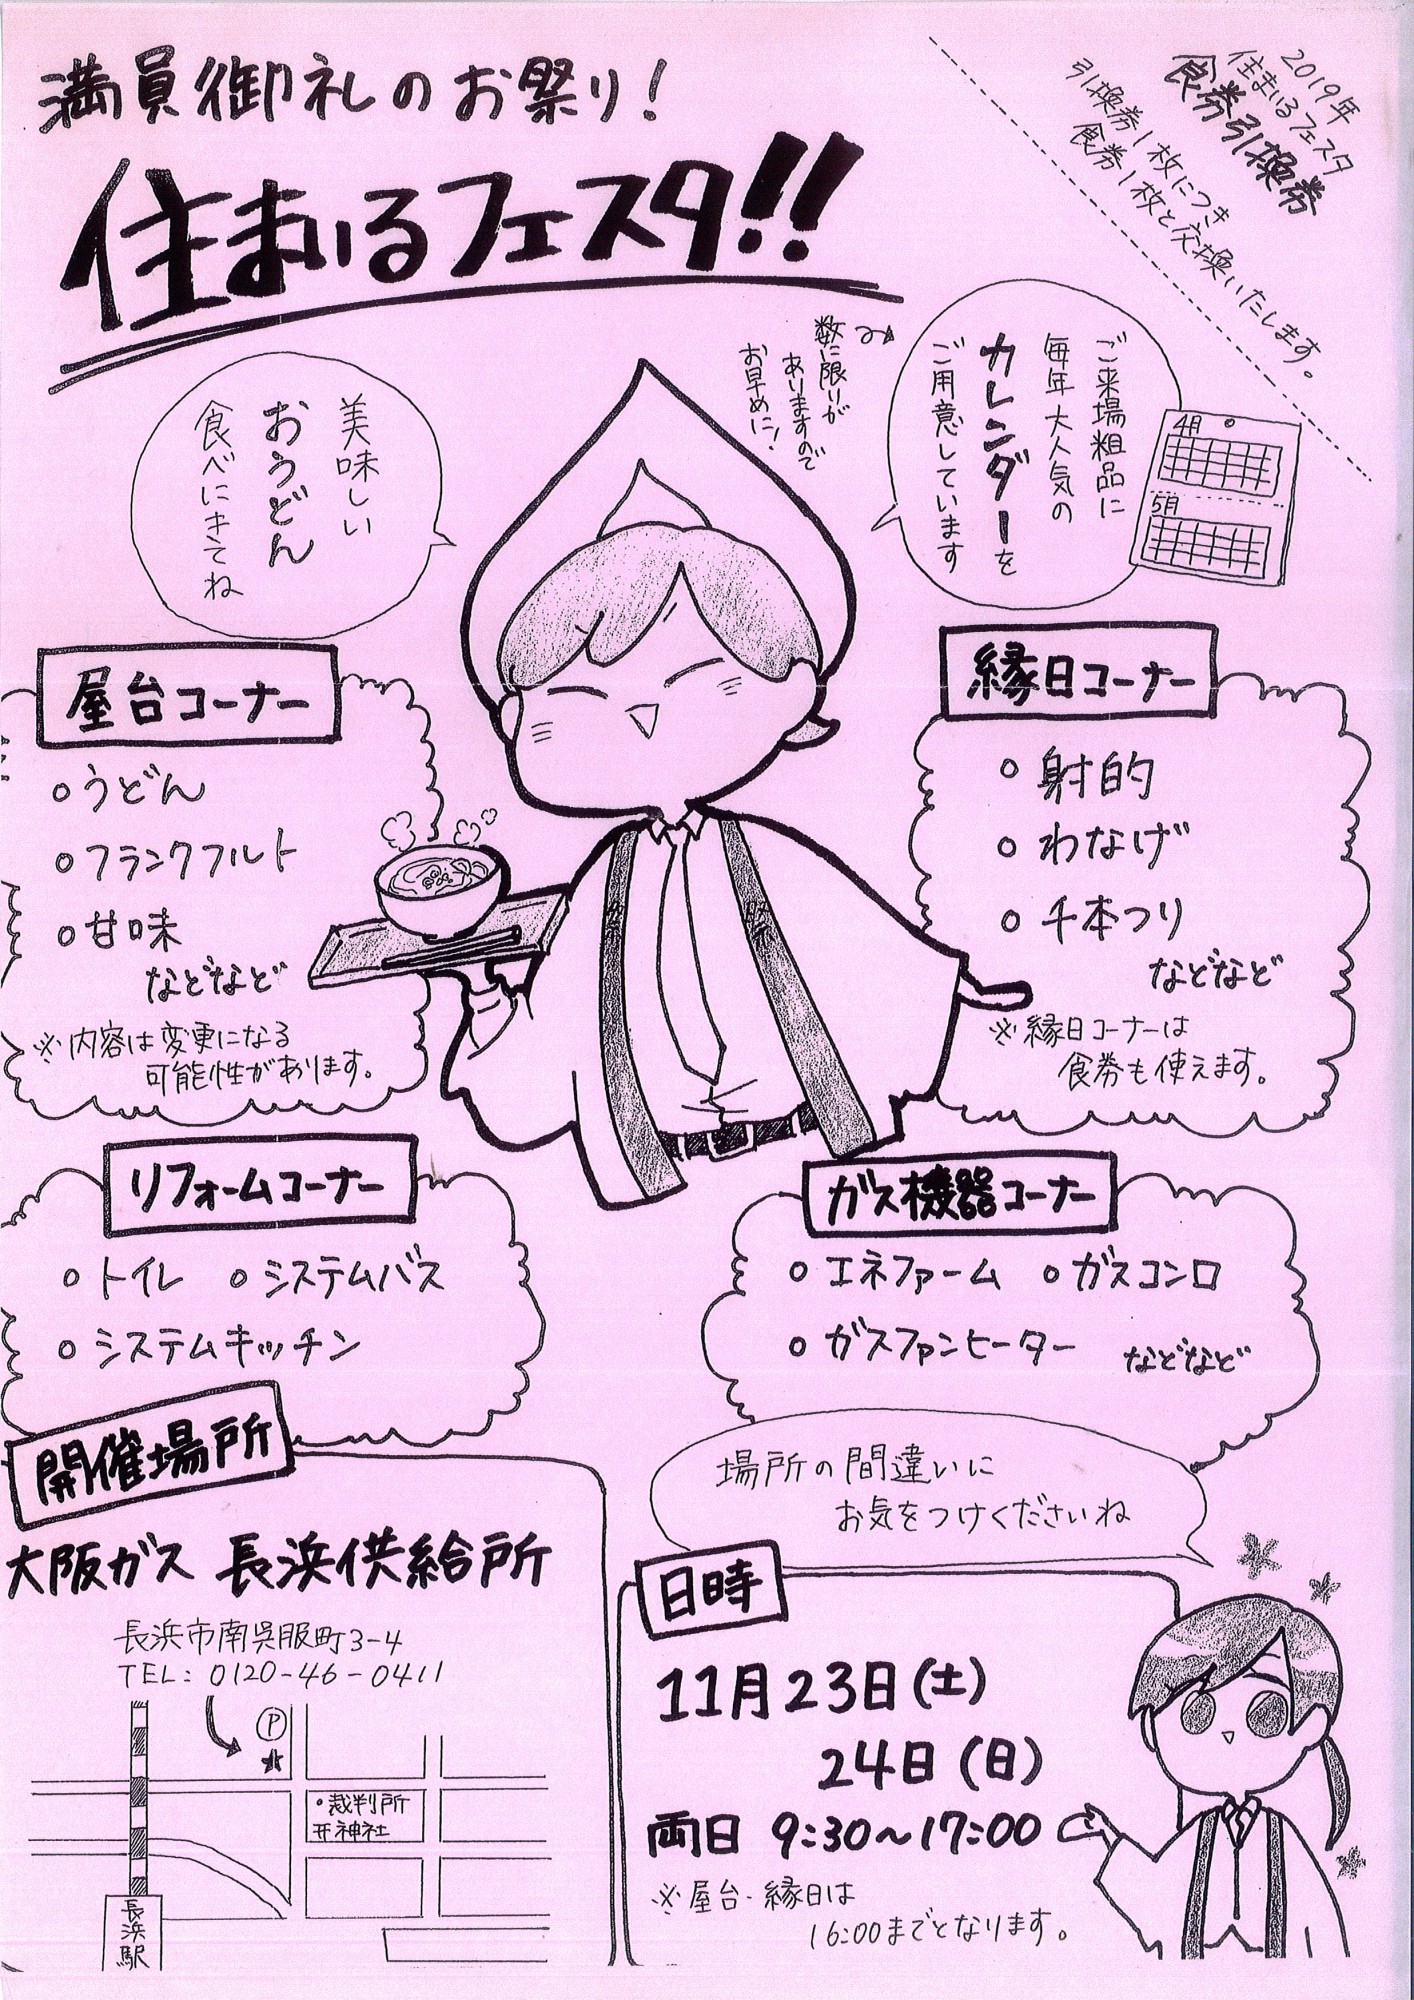 満員御礼のお祭り!
住まいるフェスタ!!
2019年
住まいるフェスタ
食券引換券
引換券1枚につき
食券1枚と交換いたします。
ご来場粗品に
毎年大人気の
カレンダーを
ご用意しています
数に限りが
ありますので
お早めに!
4月
5月
美味しい
おうどん
食べにきてね
屋台コーナー
○うどん
○フランクフルト
○甘味
などなど
※内容は変更になる
可能性があります。
縁日コーナー
○射的
○わなげ
○千本つり
などなど
※縁日コーナーは
食券も使えます。
リフォームコーナー
○トイレ ○システムバス
○システムキッチン
ガス機器コーナー
○エネファーム ○ガスコンロ
○ガスファンヒーター などなど
開催場所
大阪ガス 長浜供給所
長浜市南呉服町3-4
TEL: 0120-46-0411
P
裁判所
神社
長浜駅
場所の間違いに
お気をつけくださいね
日時
11月23日(土)
24日(日)
両日 9:30~17:00
※屋台・縁日は
16:00までとなります。